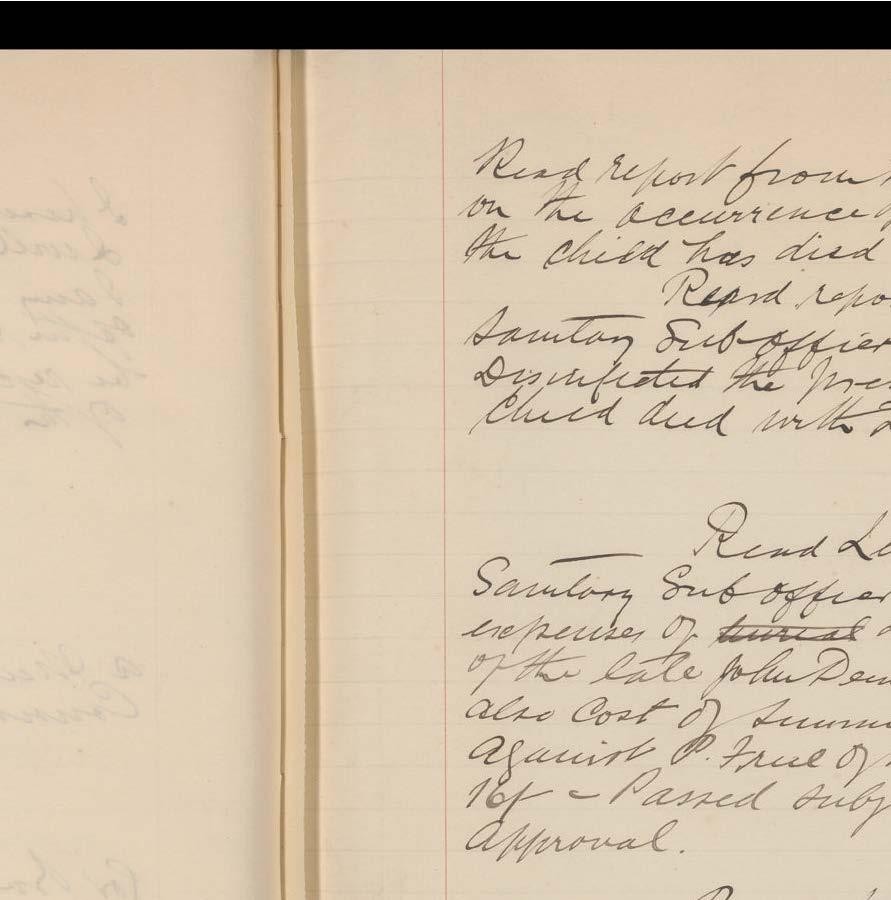 Read report from
on the occurrence
the child has died
Read repo
Sanitary Sub officer
Disinfected the
Child died with
Read Le
Sanitary Sub officer
expenses of burial
of the late John Dem
also Cost of summ
Against P. Friel of
16/ - Passed subj
Approval.